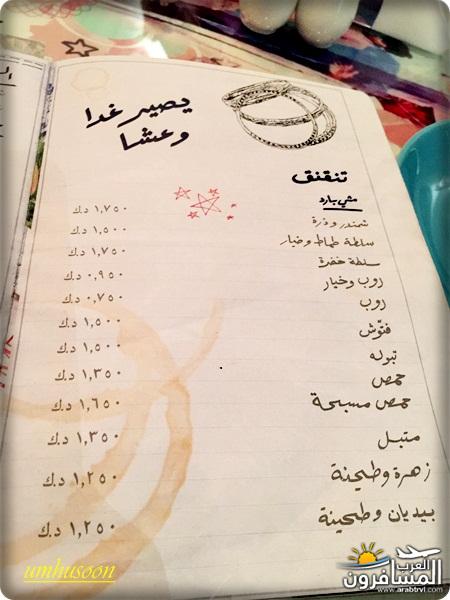 يصير غدا
وعشا
تنقنق
مشي بارد
شمندر وذرة ١,٧٥٠ د.ك
سلطة طماط وخيار ١,٥٠٠ د.ك
سلطة خضرة ١,٧٥٠ د.ك
روب وخيار ٠,٩٥٠ د.ك
روب ٠,٧٥٠ د.ك
فتّوش ١,٥٠٠ د.ك
تبوله ١,٥٠٠ د.ك
حمص ١,٣٥٠ د.ك
حمص مسبحة ١,٦٥٠ د.ك
متبل ١,٣٥٠ د.ك
زهرة وطحينة ١,٢٥٠ د.ك
بيديان وطحينة ١,٢٥٠ د.ك
umhusoon
العرب
المسافرون
www.arabtrvl.com